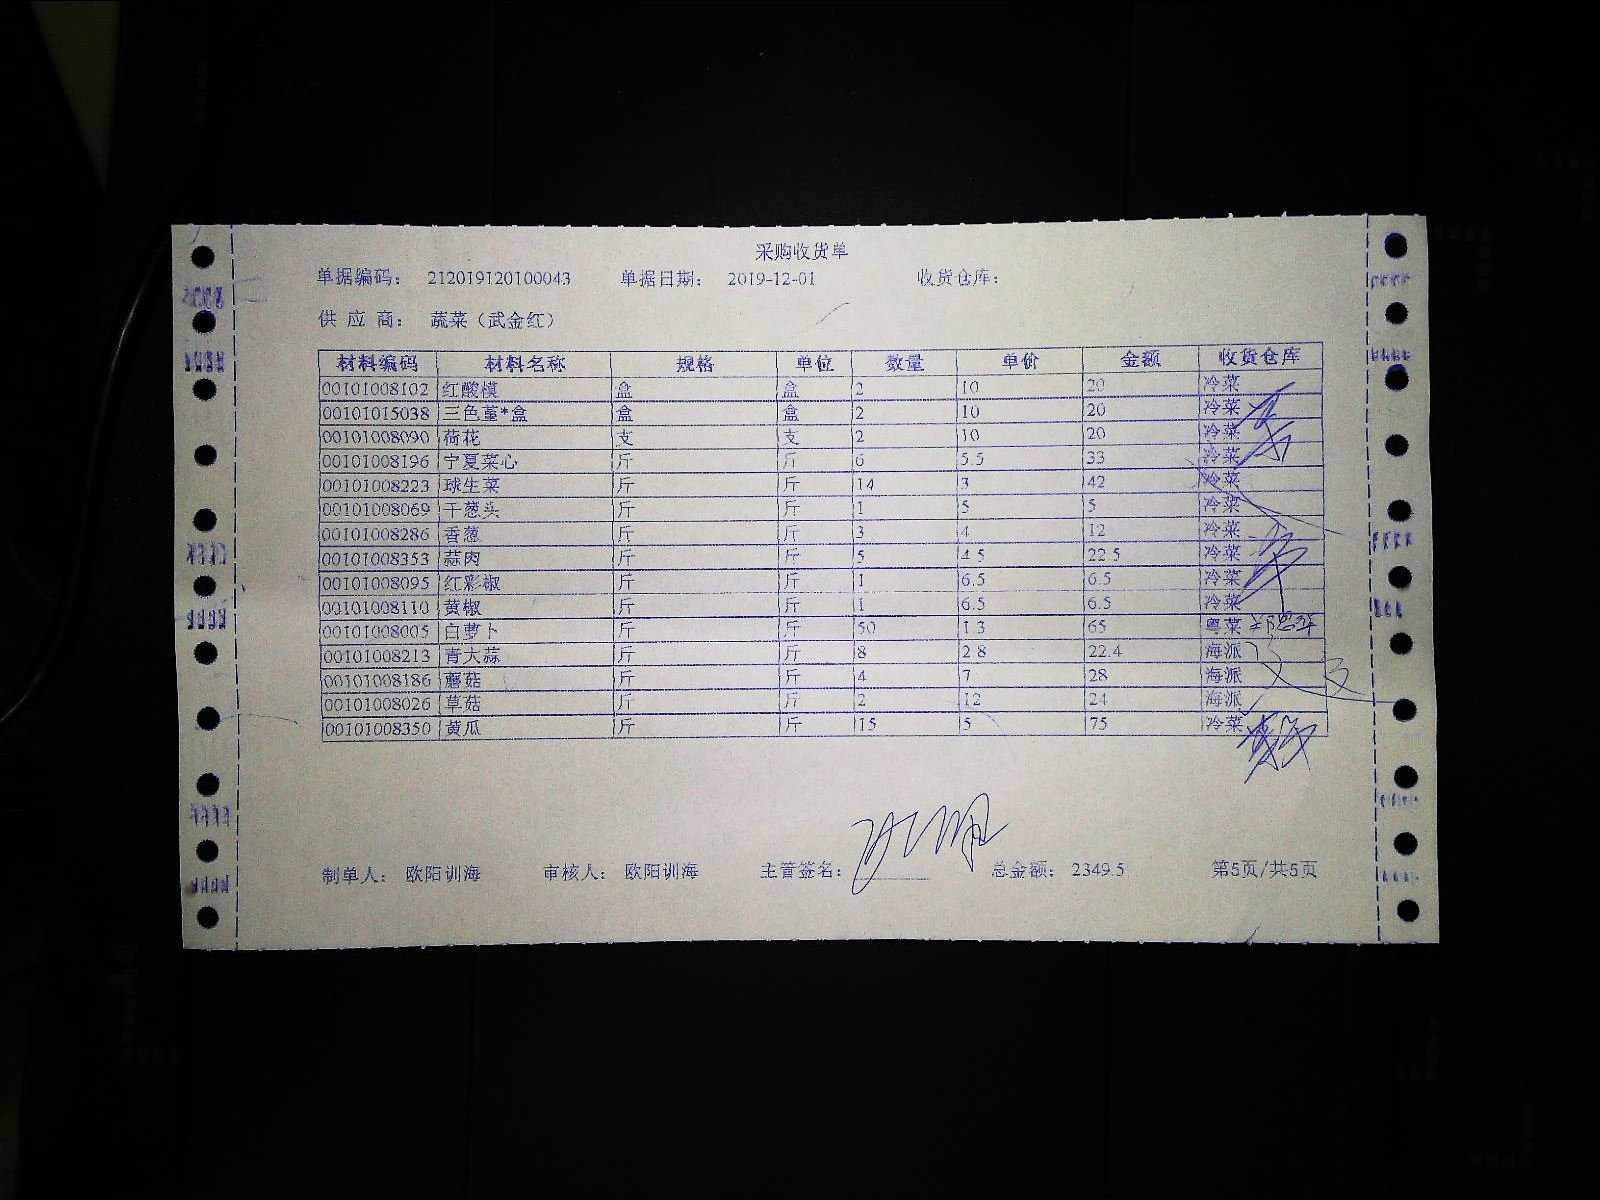 采购收货单
单据编码： 212019120100043 单据日期： 2019-12-01 收货仓库：
供 应 商： 蔬菜（武金红）
材料编码 材料名称 规格 单位 数量 单价 金额 收货仓库
00101008102 红酸模 盒 盒 2 10 20 冷菜
00101015038 三色堇*盒 盒 盒 2 10 20 冷菜
00101008090 荷花 支 支 2 10 20 冷菜
00101008196 宁夏菜心 斤 斤 6 5.5 33 冷菜
00101008223 球生菜 斤 斤 14 3 42 冷菜
00101008069 干葱头 斤 斤 1 5 5 冷菜
00101008286 香葱 斤 斤 3 4 12 冷菜
00101008353 蒜肉 斤 斤 5 4.5 22.5 冷菜
00101008095 红彩椒 斤 斤 1 6.5 6.5 冷菜
00101008110 黄椒 斤 斤 1 6.5 6.5 冷菜
00101008005 白萝卜 斤 斤 50 1.3 65 粤菜
00101008213 青大蒜 斤 斤 8 2.8 22.4 海派
00101008186 蘑菇 斤 斤 4 7 28 海派
00101008026 草菇 斤 斤 2 12 24 海派
00101008350 黄瓜 斤 斤 15 5 75 冷菜
制单人： 欧阳训海 审核人： 欧阳训海 主管签名： 总金额： 2349.5 第5页/共5页